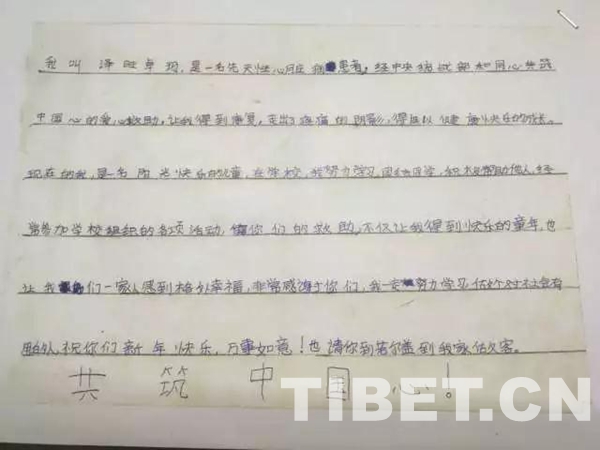 我叫泽旺卓玛,是一名先天性心脏病患者,经中央统战部和同心共筑
中国心的爱心救助,让我得到康复,走出了疼痛的阴影,得以以健康快乐的成长。
现在的我,是一名阳光快乐的儿童,在学校,我努力学习,团结同学,积极帮助他人,经
常参加学校组织的各项活动,你们的救助,不仅让我得到快乐的童年,也
让我们一家人感到格外幸福,非常感谢你们,我一定努力学习,做个对社会有
用的人,祝你们新年快乐,万事如意!也请你到若尔盖到我家做客。
共筑中国心!
TIBET.CN